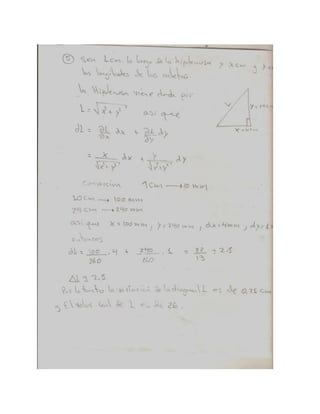 ⑤ Sea L cm la larga de la hipotenusa y x cm y
las longitudes de los catetos.
la Hipotenusa viene dada por
L = √x²+y² así que
dL = ∂L/∂x dx + ∂L/∂y dy
= x/√x²+y² dx + y/√x²+y² dy
1 cm → 10 mm
10 cm → 100 mm
→ 240 mm
así que x = 100 mm, y = 240 mm, dx = 4 mm, dy =
entonces
dL = 100/260 · 4 + 240/260 · 1 = 32/13 ≈ 2.5
ΔL ≈ 2.5
Por lo tanto la variación de la diagonal L es de 0.25 cm
y El valor real de L es de 26.